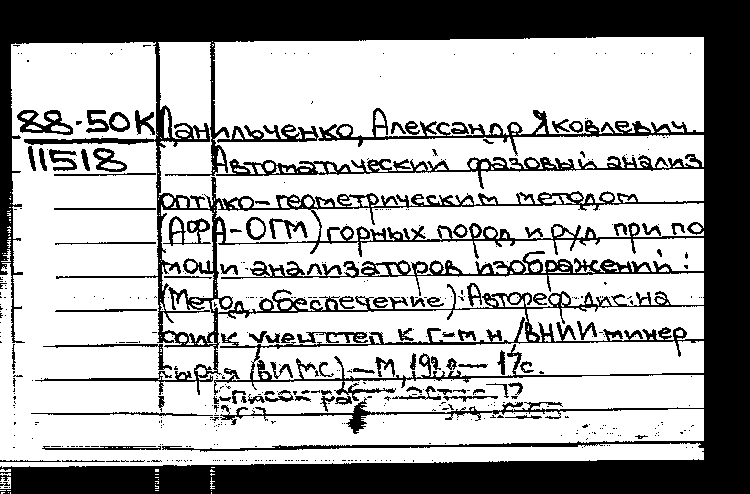 88-50К Данильченко, Александр Яковлевич.
11518 Автоматический фазовый анализ
оптико-геометрическим методом
(АФА-ОГМ) горных пород и руд при по
мощи анализаторов изображений:
(Метод, обеспечение): Автореф дис. на
соиск учен степ к. г-м. н. /ВНИИ минер.
сырья (ВИМС).—М, 1988.— 17с.
Список раб